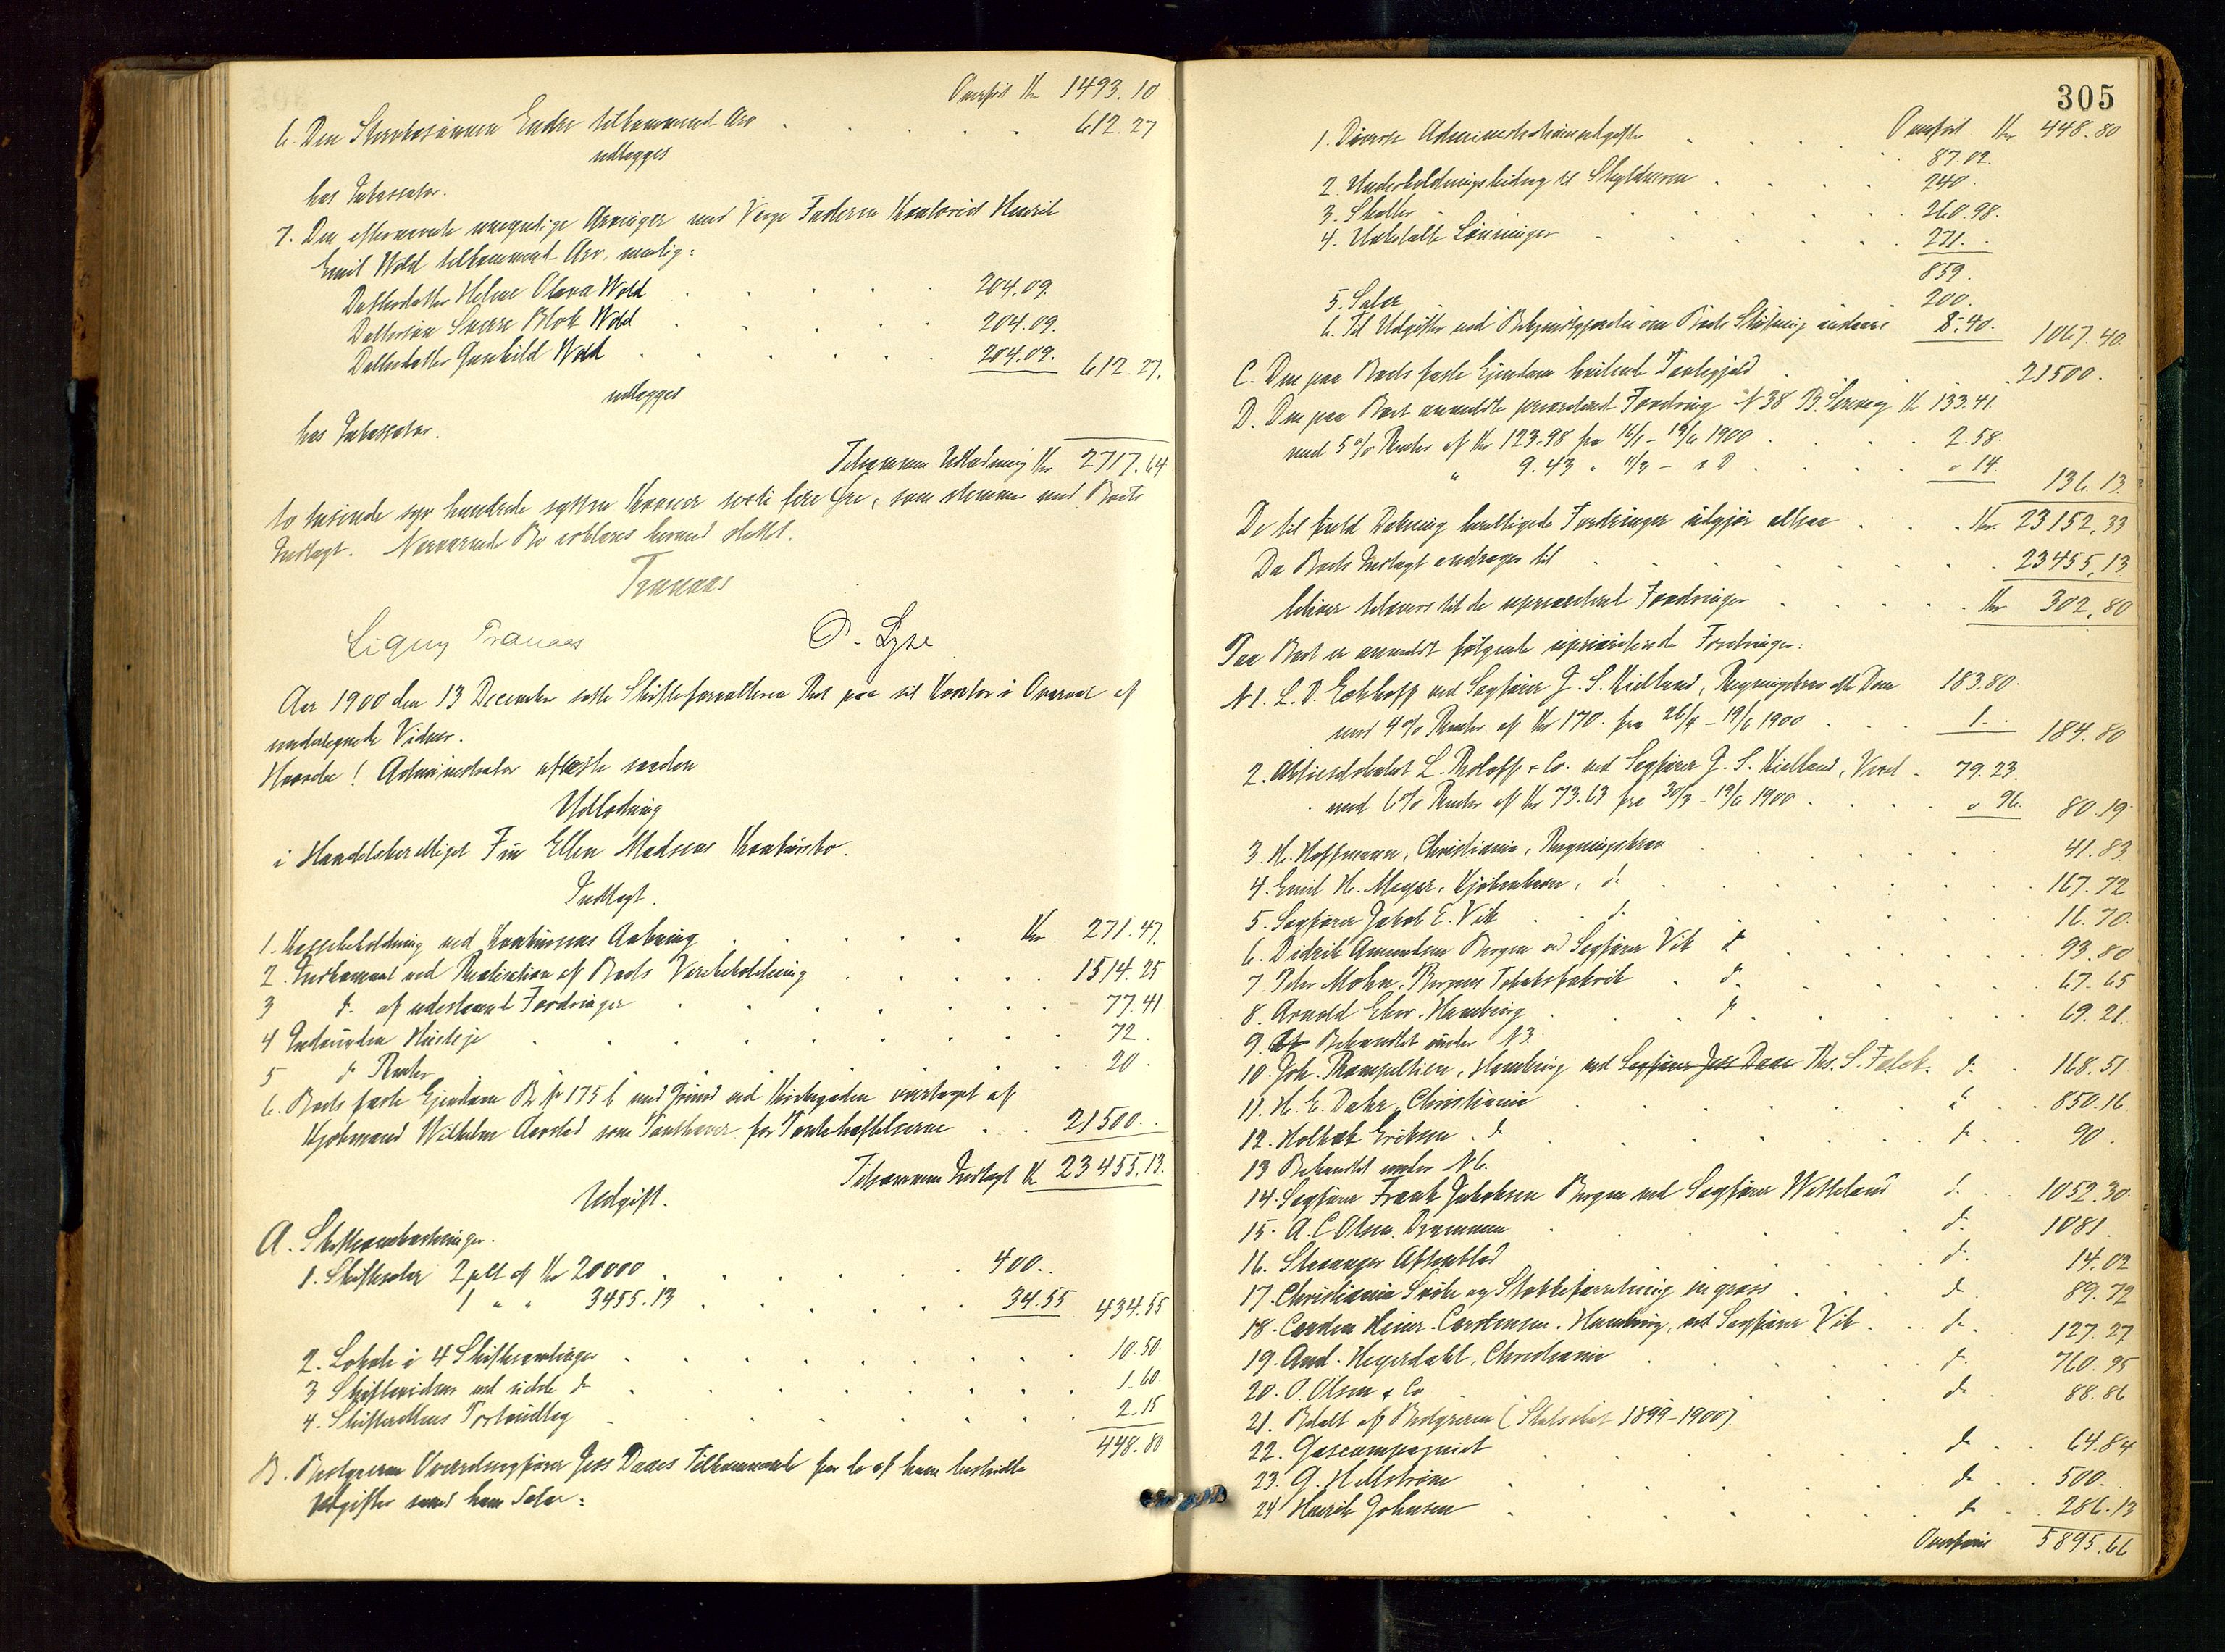 Overført Kr 1493.10
6. Den Stervbosønnen Endre tilkommende Arv 612.27
udlægges
hos Inkassator.
7. Den efternævnte umyndige Arvinger med Verge Faderen Kontorist Henrik
Emil Wold tilkommende Arv, nemlig:
Datterdatter Helene Olava Wold 204.09.
Dattersøn Sverre Blok Wold 204.09.
Datterdatter Gunhild Wold 204.09. 612.27.
udlægges
hos Inkassator.
Tilsammen Udlodning Kr 2717.64
to tusinde syv hundrede sytten Kroner sexti fire Øre, som stemmer med Boets
Indtægt. Nærværende Bo erklæres hermed sluttet.
Tranaas
Signy Tranaas O. Lyse
Aar 1900 den 13 December satte Skifteforvalteren Ret paa sit Kontor i Overvær af
undertegnede Vidner.
Hvorda! Administrator afleste saaden
Udlodning
i Handelsberettiget Fru Ellen Madsens Konkursbo.
Indtægt.
1. Kassebeholdning ved Konkursens Aabning Kr. 271.47.
2. Indkommet ved Realisation af Boets Varebeholdning 1514.25
3 do. af udestaaende Fordringer 77.41
4 Indvunden Husleje 72.
5 do Renter 20.
6. Boets faste Ejendom B. No 175 b med Grund ved Kirkegaden overtaget af
Kjøbmand Wilhelm Aarstad som Panthaver for Pantehæftelserne 21500..
Tilsammen Indtægt Kr 23455.13.
Udgift.
A. Skifteomkostninger.
1. Skiftesalær 2 pCt af Kr 20000 400..
1 " " 3455.13 34.55 434.55
2. Lokale i 4 Skiftesamlinger 10.50.
3 Skiftevidner ved sidste do 1.60.
4. Skifterettens Portoudlæg 2.15
448.80
B. Bestyreren Overretssagfører Jess Daaes Tilkommende for de af ham bestridte
Udgifter samt hans Salær:
305
Overført Kr 448.80
1. Diverse Administrationsudgifter 87.02.
2. Underholdningsbidrag til Skyldneren 240.
3. Skatter 260.98.
4. Udbetalte Lønninger 271..
859.
5. Salær 200.
6. Til Udgifter ved Bekjendtgjørelse om Boets Slutning 8.40. 1067.40.
C. Den paa Boets faste Ejendom hvilende Pantegjæld 21500.
D. Den paa Boet anmeldte prioriterede Fordring N 38 Kr 133.41.
med 5% Renter af Kr 123.98 fra 16/1 - 19/6 1900 2.58.
" 9.43 " 1/3 - do " 14. 136.13.
De til fuld Dækning berettigede Fordringer udgjør altsaa Kr. 23152.33
Da Boets Indtægt andrager til 23455.13.
bliver tilovers til de uprioriterede Fordringer Kr 302.80
Paa Boet er anmeldt følgende uprioriterede Fordringer:
N 1. L. D. Eckhoff ved Sagfører J. S. Kielland, Regningskrav efter Dom 183.80.
med 4% Renter af Kr 170. fra 26/4 - 19/6 1900 1.. 184.80
2. Aktieselskabet L. Roloff & Co. ved Sagfører J. S. Kielland, Vexel 79.23.
med 6% Renter af Kr 73.63 fra 30/3 - 19/6 1900 " 96. 80.19.
3. H. Hoffmann, Christiania, Regningskrav 41.83
4. Emil H. Meyer, Kjøbenhavn, do 167.72
5. Sagfører Jakob E. Vik do. 16.70.
6. Didrik Amundsen Bergen ved Sagfører Vik do 93.80
7. Peter Mohn, Bergens Tobaksfabrik do. 67.65
8. Arnold Eber. Hamburg do 69.21.
9. Behandlet under N 3.
10. Joh. Rompeltien, Hamburg ved Sagfører Jess Daae Ths. S. Falck. do. 168.51
11. H. E. Dahr, Christiania do 850.16
12. Holbæk Eriksen. do do 90.
13 Behandlet under N 6.
14. Sagfører Frank Jakobsen Bergen ved Sagfører Wetteland do. 1052.30.
15. A. C. Olsen. Drammen do. 1081.
16. Stavanger Aftenblad do. 14.02
17. Christiania Snøre og Stokkeforretning en gross do. 89.72
18. Carsten Heinr. Carstensen. Hamburg, ved Sagfører Vik do. 127.27
19. And. Heyerdahl, Christiania do. 760.95
20. O. Olsen & Co do. 88.86
21. Betalt af Bestyreren (Statsskat 1899-1900).
22. Gascompagniet do 64.84
23. G. Hellstrøm do 500.
24 Henrik Johnsen do 286.13
Overføres 5895.66